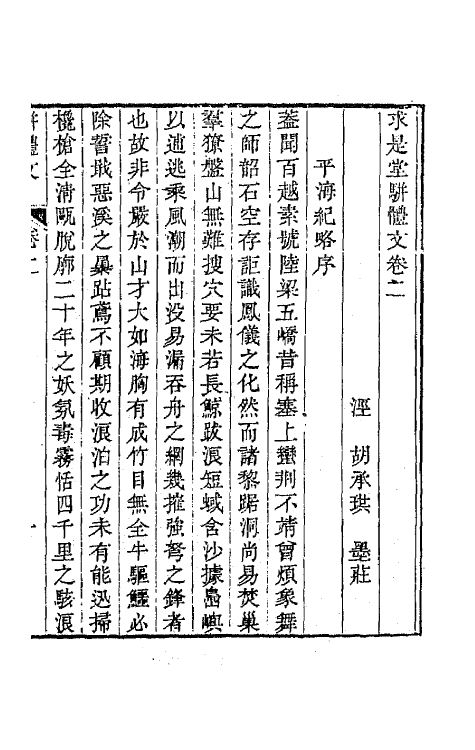 求是堂駢體文卷二
涇　胡承珙　墨莊
平海紀略序
蓋聞百越素號陸梁五嶠昔稱塞上蠻荆不靖曾煩象舞
之師韶石空存詎識鳳儀之化然而諸黎踞洞尚易焚巢
羣獠盤山無難搜穴要未若長鯨跋浪短蜮含沙據島嶼
以逋逃乘風潮而出没易漏吞舟之網幾摧強弩之鋒者
也故非令嚴於山才大如海胸有成竹目無全牛驅鱷必
除誓戢惡溪之暴跕鳶不顧期收浪泊之功未有能迅掃
欃槍全清甌脫廓二十年之妖氛毒霧恬四千里之駭浪
駢體文　卷二　一